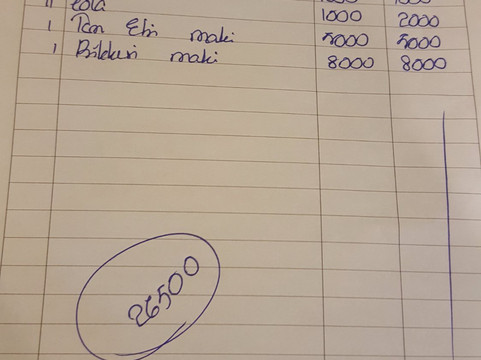 11 Cola 1000 2000
1 Tan Ebi maki 5000 5000
1 Bilduri maki 8000 8000
26500